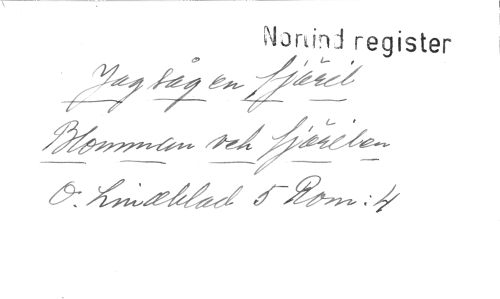 Norlind register
Jag såg en fjäril
Blomman och fjärilen
O. Lindblad 5 Rom: 4